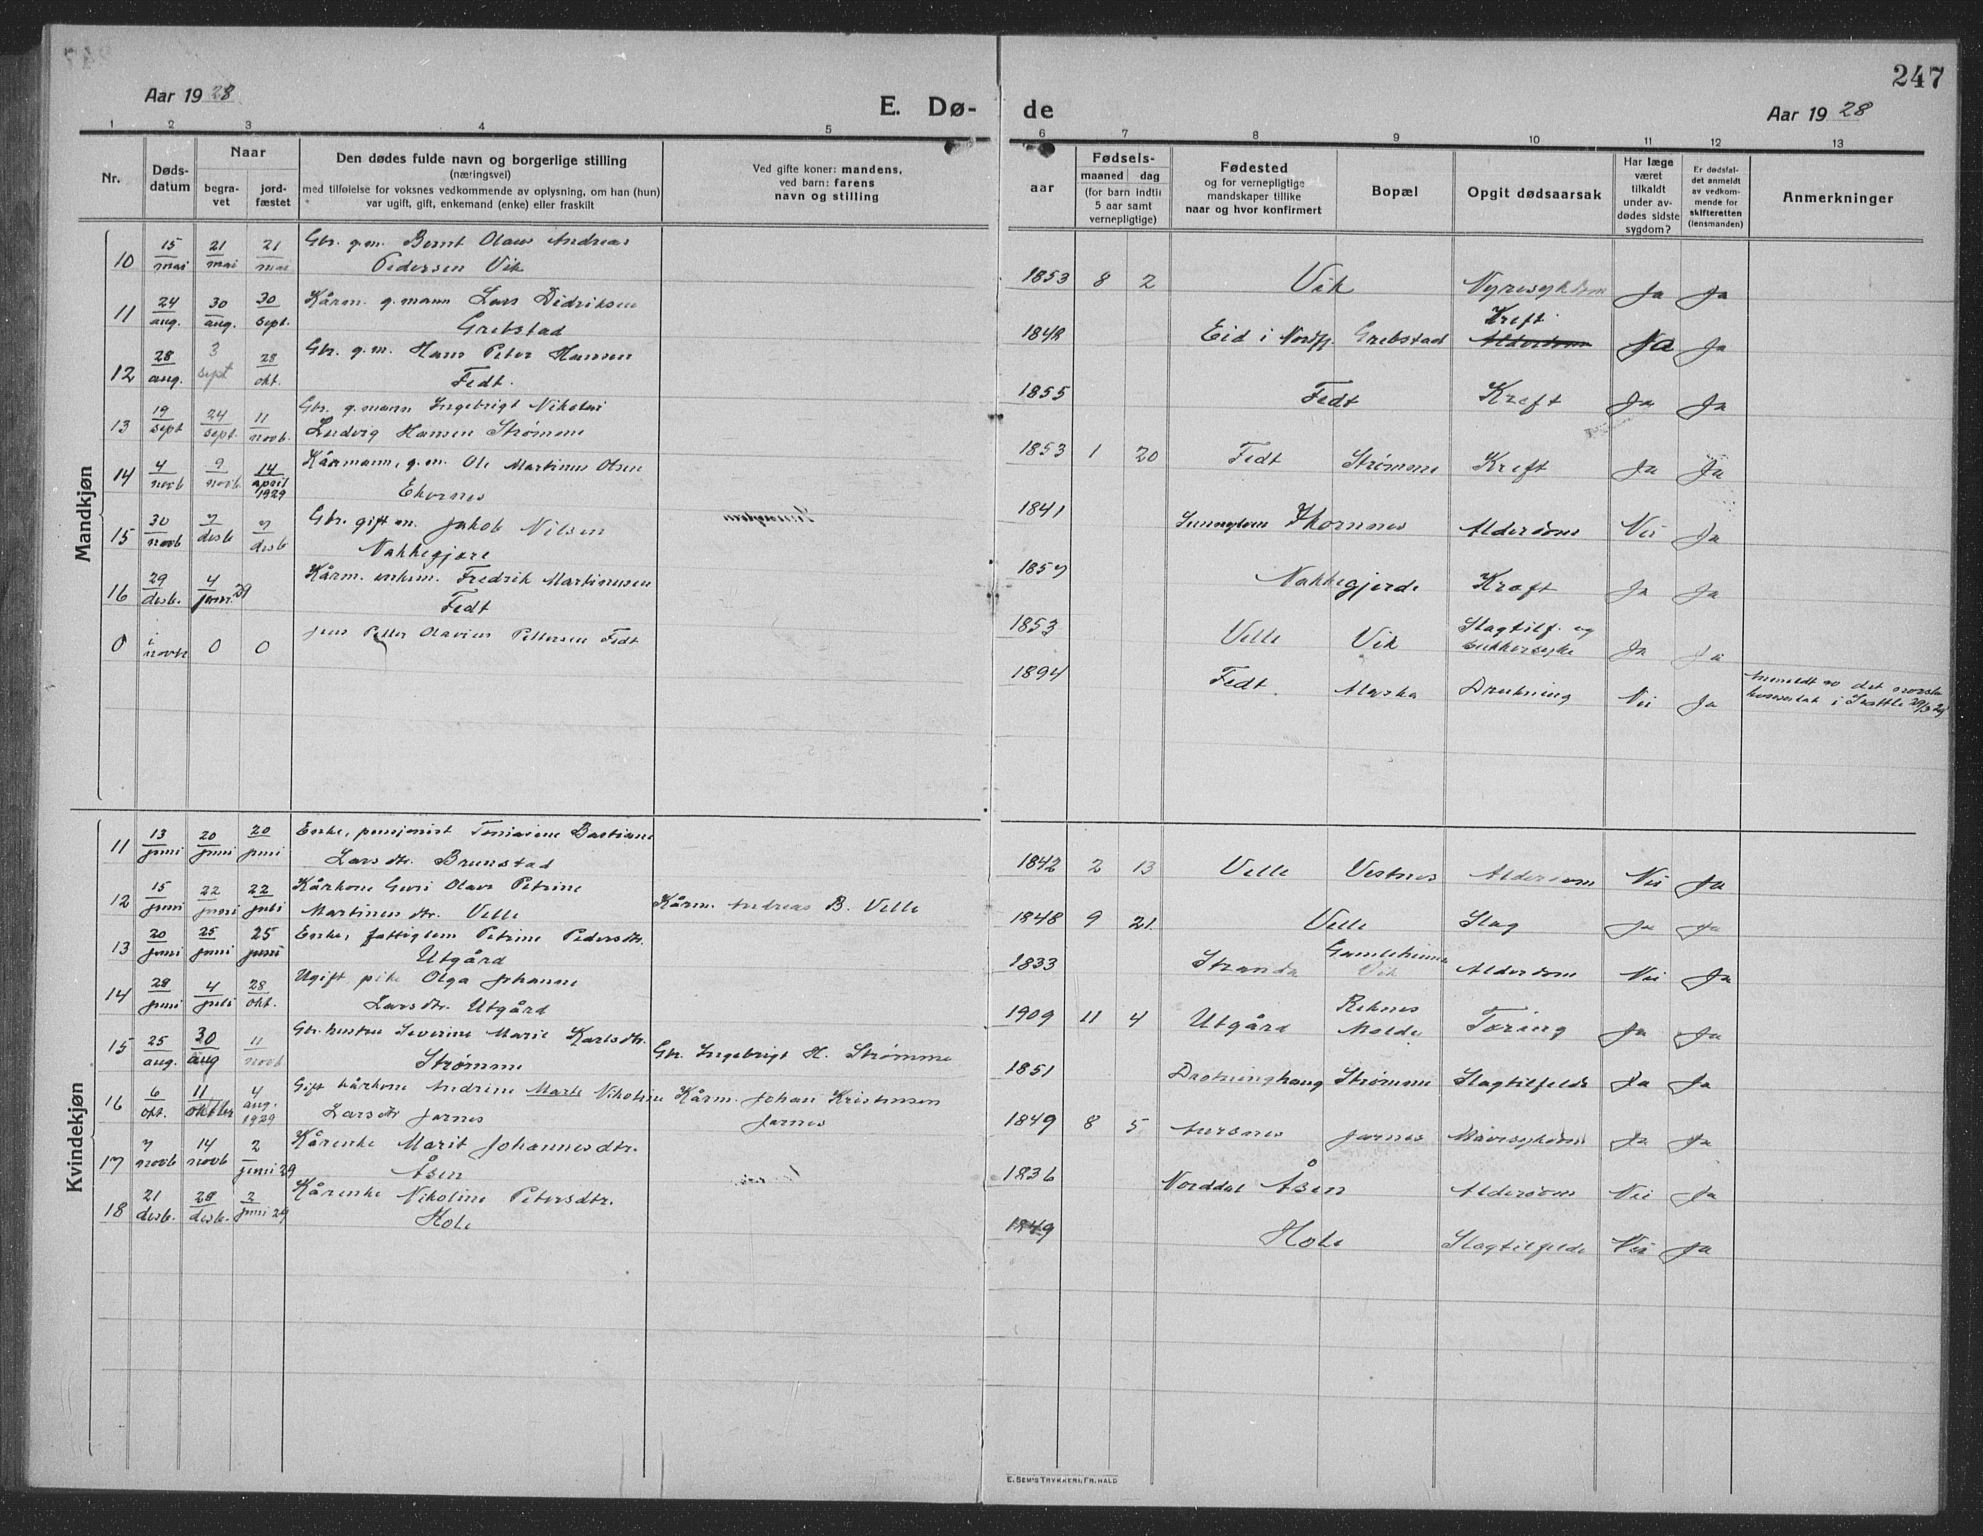 247
Aar 1928
E. Dø-
de
Aar 1928
1 2 3 4 5 6 7 8 9 10 11 12 13
Nr.
Døds-
datum
Naar
begra-
vet
jord-
fæstet
Den dødes fulde navn og borgerlige stilling
(næringsvei)
med tilføielse for voksnes vedkommende av oplysning, om han (hun)
var ugift, gift, enkemand (enke) eller fraskilt
Ved gifte koner: mandens,
ved barn: farens
navn og stilling
aar
Fødsels-
maaned dag
(for barn indtil
5 aar samt
vernepligtige)
Fødested
og for vernepligtige
mandskaper tillike
naar og hvor konfirmert
Bopæl
Opgit dødsaarsak
Har læge
været
tilkaldt
under av-
dødes sidste
sygdom?
Er dødsfal-
det anmeldt
av vedkom-
mende for
skifteretten
(lensmanden)
Anmerkninger
Mandkjøn
10 15 mai 21 mai 21 mai Gbr. g.m. Bernt Olaus Andreas
Pedersen Vik 1853 8 2 Vik Nyresykdom Ja Ja
11 24 aug. 30 aug. 30 sept. Kårm. g. mann Lars Didriksen
Grebstad 1842 Eid i Nordfj Grebstad Kreft Alderdom Ja Ja
12 28 aug. 3 sept 28 okt. Gbr. g.m. Hans Peter Hansen
Fedt. 1855 Fedt Kreft Ja Ja
13 19 sept 24 sept. 11 novb. Gbr. g. mann Ingebrigt Nikolai
Ludvig Hansen Strømme 1853 1 20 Fedt Strømme Kreft Ja Ja
14 4 novb 9 novb 14 april 1929 Kårmann, g.m. Ole Martinus Olsen
Ekornes 1841 Ikornnes Alderdom Nei Ja
15 30 novb 7 desb 7 desb Gbr. gift m. Jakob Nilsen
Nakkegjære 1857 Nakkegjerde Kræft Ja Ja
16 29 desb. 4 29 Kårm. enkem. Fredrik Martinusen
Fedt 1853 Velle Vik Slagtilf. og
sukkersyke Ja Ja
0 i novbr 0 0 Jens Petter Olavius Pettersen Fedt 1894 Fedt. Alaska Drukning Nei Ja
det norske
i Seattle
Kvindekjøn
11 13 juni 20 juni 20 juni Enke, pensjonist Bastiane
Larsdtr. Brunstad 1842 2 13 Velle Vestnes Alderdom Nei Ja
12 15 juni 22 juni 22 juli Kårkone Guri Olave Petrine
Martinusdtr. Velle Kårm. Andreas B. Velle 1848 9 21 Velle Slag Ja Ja
13 20 juni 25 juni 25 juni Enke, fattiglem Petrine Pedersdtr.
Utgård 1833 Stranda Gamleheimen
Vik Alderdom Nei Ja
14 28 juni 4 juli 28 okt. Ugift pike Olga Johanne
Larsdtr. Utgård 1909 11 4 Utgård Reknes
Molde Tæring Ja Ja
15 25 aug. 30 aug 11 novb Gbr. hustru Severine Marie Karlsdtr.
Strømme Gbr. Ingebrigt H. Strømme 1851 Drotninghaug Strømme Slagtilfelde Ja Ja
16 6 okt. 11 oktbr 4 aug. 1929 Gift kårkone Andrine Marte Nikoline
Larsdtr Jarnes Kårm. Johan Kristensen
Jarnes 1849 8 5 Aursnes Jarnes Mavesykdom Ja Ja
17 7 novb 14 novb 2 juni 29 Kårenke Marit Johannesdtr.
Åsen 1836 Norddal Åsen Alderdom Nei Ja
18 21 desb. 28 desb. 2 juni 29 Kårenke Nikoline Petersdtr.
Hole 1849 Hole Slagtilfelde Nei Ja
E. SEM'S TRYKKERI, FR.HALD